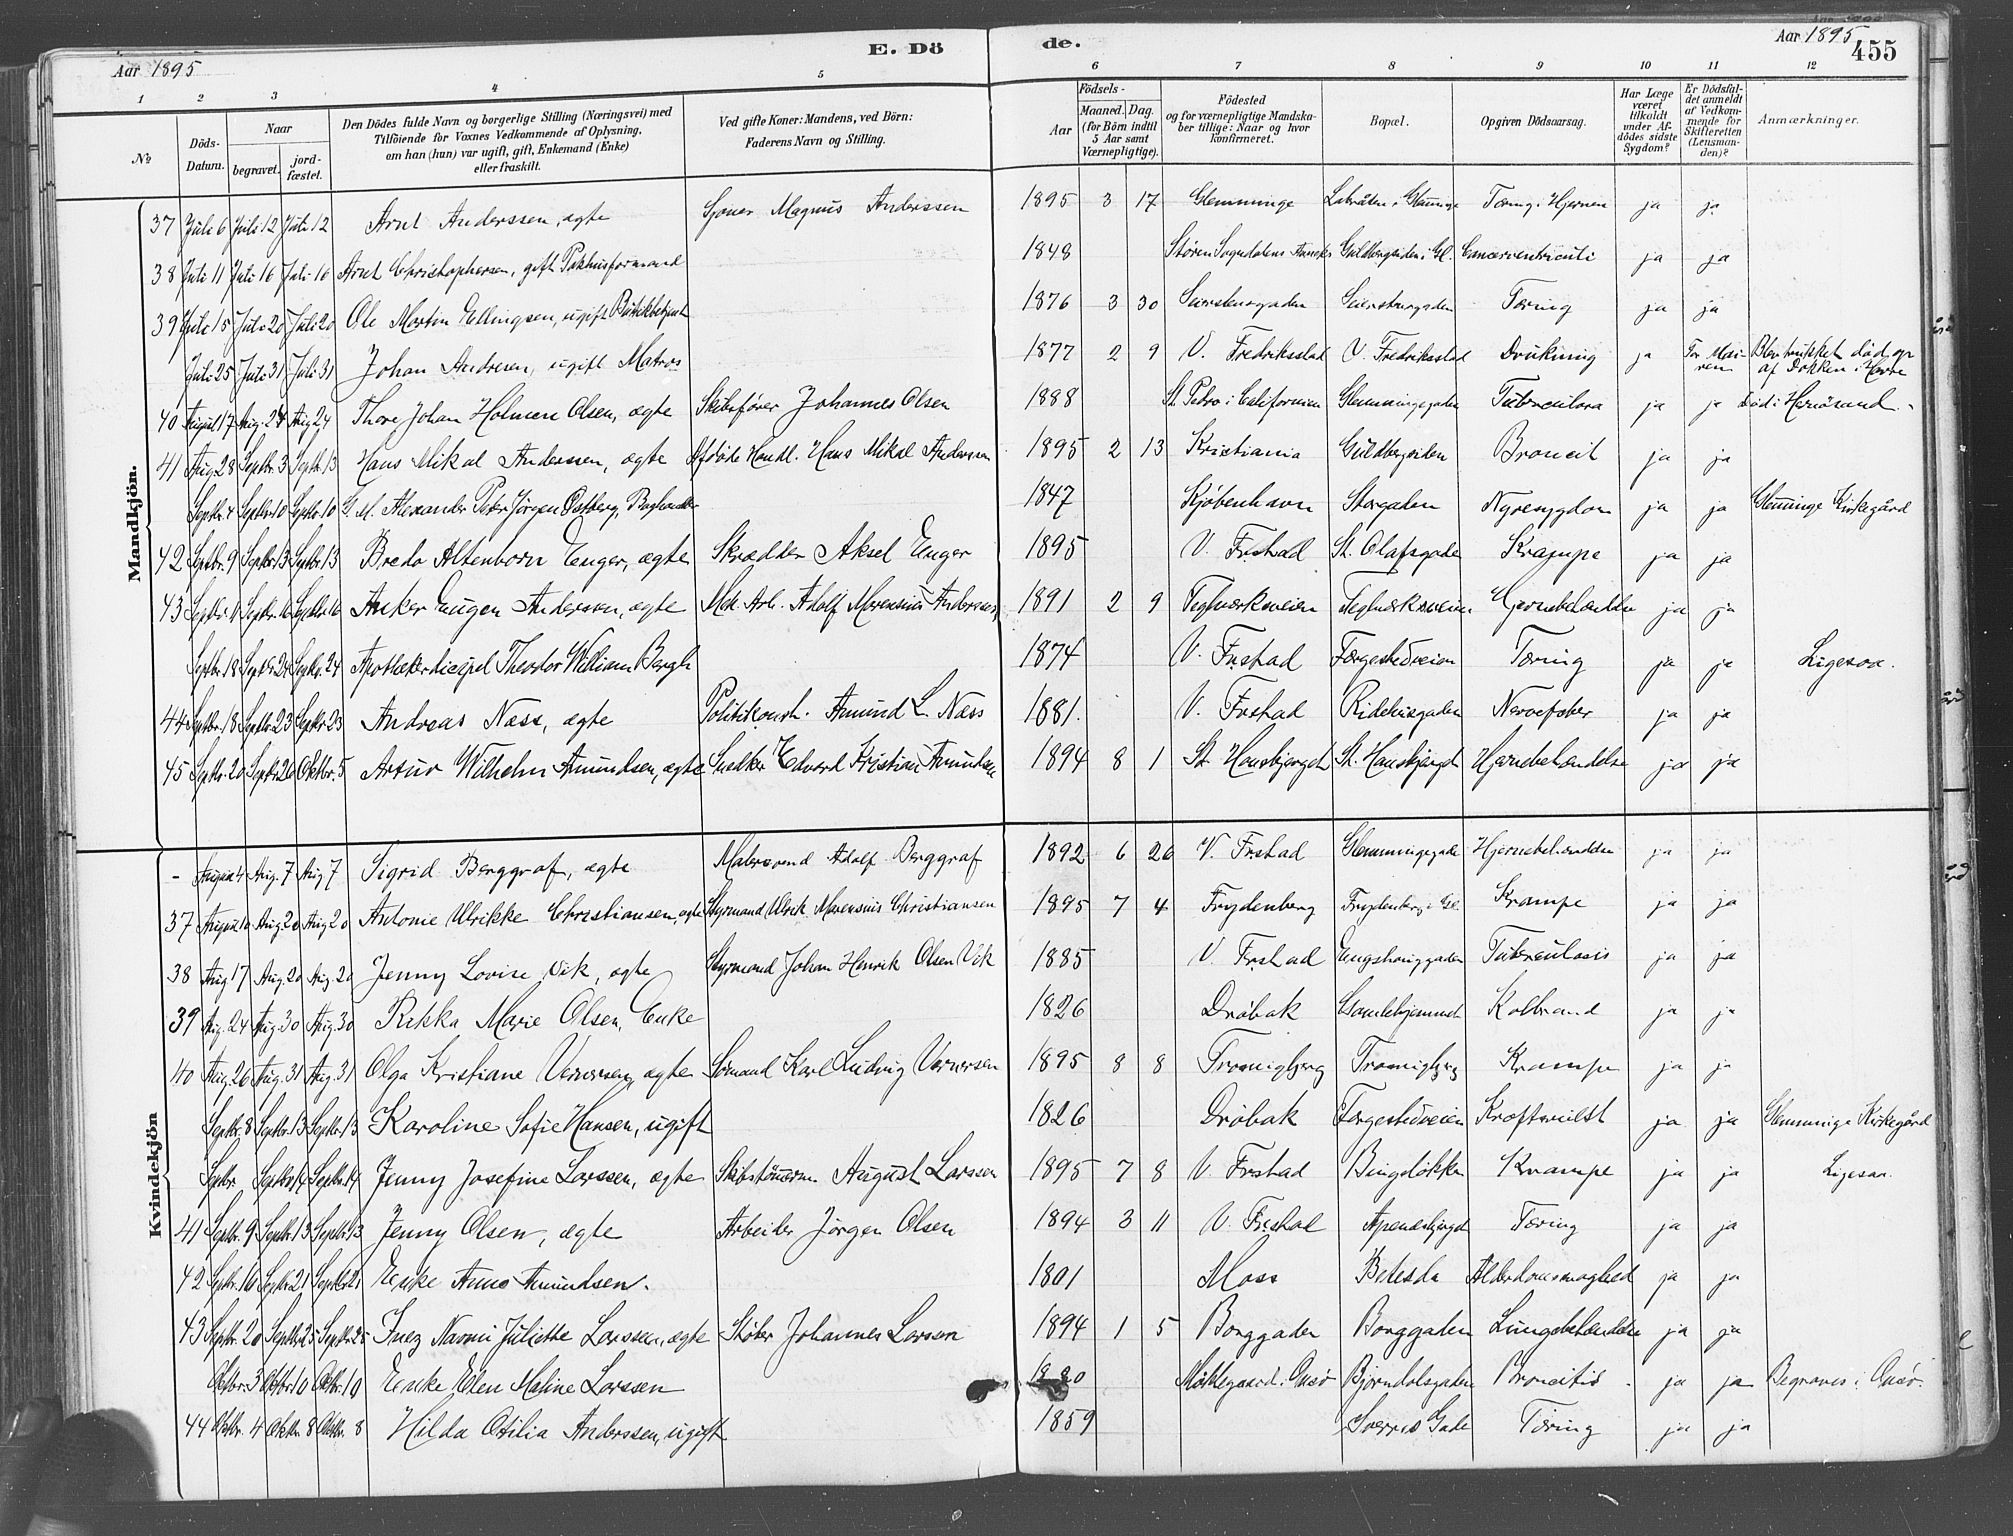 Aar 1895
E. Dö
de.
Aar 1895
455
1 2 3 4 5 6 7 8 9 10 11 12
№
Döds-Datum.
Naar
begravet.
jord-fæstet.
Den Dödes fulde Navn og borgerlige Stilling (Næringsvei) med
Tilföiende for Voxnes Vedkommende af Oplysning,
om han (hun) var ugift, gift, Enkemand (Enke)
eller fraskilt.
Ved gifte Koner: Mandens, ved Börn:
Faderens Navn og Stilling.
Födsels-
Aar
Maaned. Dag.
(for Börn indtil
5 Aar samt
Værnepligtige).
Födested
og for værnepligtige Mandska-
ber tillige: Naar og hvor
konfirmeret.
Bopæl.
Opgiven Dödsaarsag.
Har Læge
været
tilkaldt
under Af-
dödes sidste
Sygdom?
Er Dödsfal-
det anmeldt
af Vedkom-
mende for
Skifteretten
(Lensman-
den)?
Anmærkninger.
Mandkjön.
37 Juli 6 Juli 12 Juli 12 Arnt Anderssen, ægte Magnus Anderssen 1895 3 17 Glemminge Tæring i Hjernen ja ja
38 Juli 11 Juli 16 Juli 16 Arnt Christophersen, gift Pakhusformand 1848 Guldbergsiden i Gl. ja ja
39 Juli 15 Juli 20 Juli 20 Ole Martin Ellingsen, ugift Butikbetjent 1876 3 30 Seiersborggaden Seiersborggaden Tæring ja ja
Juli 25 Juli 31 Juli 31 Johan Andresen, ugift Matros 1877 2 9 V. Fredriksstad V. Fredriksstad Drukning ja Blev trukket død op
af Dokken i Havre
40 August 17 Aug. 24 Aug 24 Thore Johan Holmen Olsen, ægte Skibsfører Johannes Olsen 1888 St. Pedro i Californien Glemmingegaden Tuberculosa ja ja Død i Hernösand.
41 Aug 28 Septbr. 3 Septbr. 13 Hans Mikal Anderssen, ægte Afdøde Handl. Hans Mikal Anderssen 1895 2 13 Kristiania Guldbergsiden Broncit ja ja
Septbr. 4 Septbr 10 Septbr 10 G. M. Alexander Peter Jörgen Østberg, 1847 Kjöbenhavn Storgaden Nyresygdom ja ja Glemminge Kirkegård
42 Septbr. 9 Septbr 13 Septbr. 13 Bredo Altenborn Enger, ægte Skrædder Aksel Enger 1895 V. Frstad St. Olafsgade Krampe ja ja
43 Septbr. 11 Septbr. 16 Septbr 16 Anker Eugen Anderssen, ægte Mek. Arb. Adolf Marensius Anderssen 1891 2 9 Teglværksveien Teglværksveien Hjernebetændelse ja ja
Septbr 18 Septbr 24 Septbr. 24 Apothekerdiscipel Theodor William Bergh 1874 V. Frstad Færgestedveien Tæring ja ja Ligesaa.
44 Septbr. 18 Septbr. 23 Septbr 23 Andreas Næss, ægte Politikonst. Amund L. Næss 1881. V. Frstad Ridehusgaden Nervefeber ja ja
45 Septbr. 20 Septbr 26 Oktbr. 5 Artur Wilhelm Amundsen, ægte Snedker Edvard Kristian Amundsen 1894 8 1 St. Hansbjerget St. Hansbjerget Hjernebetændelse ja ja
Kvindekjön
- August 4 Aug. 7 Aug 7 Sigrid Berggraf, ægte Malersvend Adolf Berggraf 1892 6 26 V. Frstad Glemmingegade Hjernebetændelse ja ja
37 August 10 Aug. 20 Aug 20 Antonie Ulrikke Christiansen, ægte Styrmand Ulrik Marensius Christiansen 1895 7 4 Frydenberg Frydenberg i Gl. Krampe ja ja
38 Aug 17 Aug. 20 Aug. 20 Jenny Lovise Vik, ægte Styrmand Johan Henrik Olsen Vik 1885 V. Frstad Enghauggaden Tuberculosis ja ja
39 Aug. 24 Aug 30 Aug. 30 Rikka Marie Olsen, Enke 1826 Dröbak Gamlehjemmet Kolbrand ja ja
40 Aug. 26 Aug. 31 Aug. 31 Olga Kristiane Vernersen, ægte Sömand Karl Ludvig Vernersen 1895 8 8 Tromigbjerg Tromigbjerg Krampe ja ja
Septbr. 8 Septbr. 13 Septbr. 13 Karoline Sofie Hansen, ugift 1826 Dröbak Færgestedveien Kræftsvulst ja ja Glemminge Kirkegård
Septbr Septbr 14 Septbr. 14 Jenny Josefine Larssen, ægte Skibstömrm. August Larssen 1895 7 8 V. Frstad Bingsløkken Krampe ja ja Ligesaa.
41 Septbr. 9 Septbr. 13 Septbr 13 Jenny Olsen, ægte Arbeider Jörgen Olsen 1894 3 11 V. Frstad Apenæsbjerget Tæring ja ja
42 Septbr. 16 Septbr 21 Septbr 21 Enke Anne Amundsen. 1801 Moss Betesda Alderdomssvaghed ja ja
43 Septbr. 20 Septbr 25 Septbr 25 Inez Naomi Juliette Larssen, ægte Støber Johannes Larsen 1894 1 5 Borggaden Borggaden Lungebetændelse ja ja
Oktbr. 3 Oktbr 10 Oktbr. 10 Enke Elen Maline Larssen Møklegaard i Onsø Bjørndalsgaden Broncitis ja ja Begraves i Onsø.
44 Oktbr. 4 Oktbr 8 Oktbr. 8 Hilda Otilia Anderssen, ugift 1859 Sverres Gade Tæring ja ja